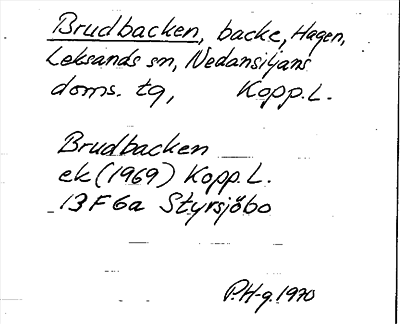 Brudbacken, backe, Hagen,
Leksands sn, Nedansiljans
doms. tg, Kopp.L.
Brudbacken
ek (1969) Kopp.L.
13F6a Styrsjöbo
P.H-g. 1970